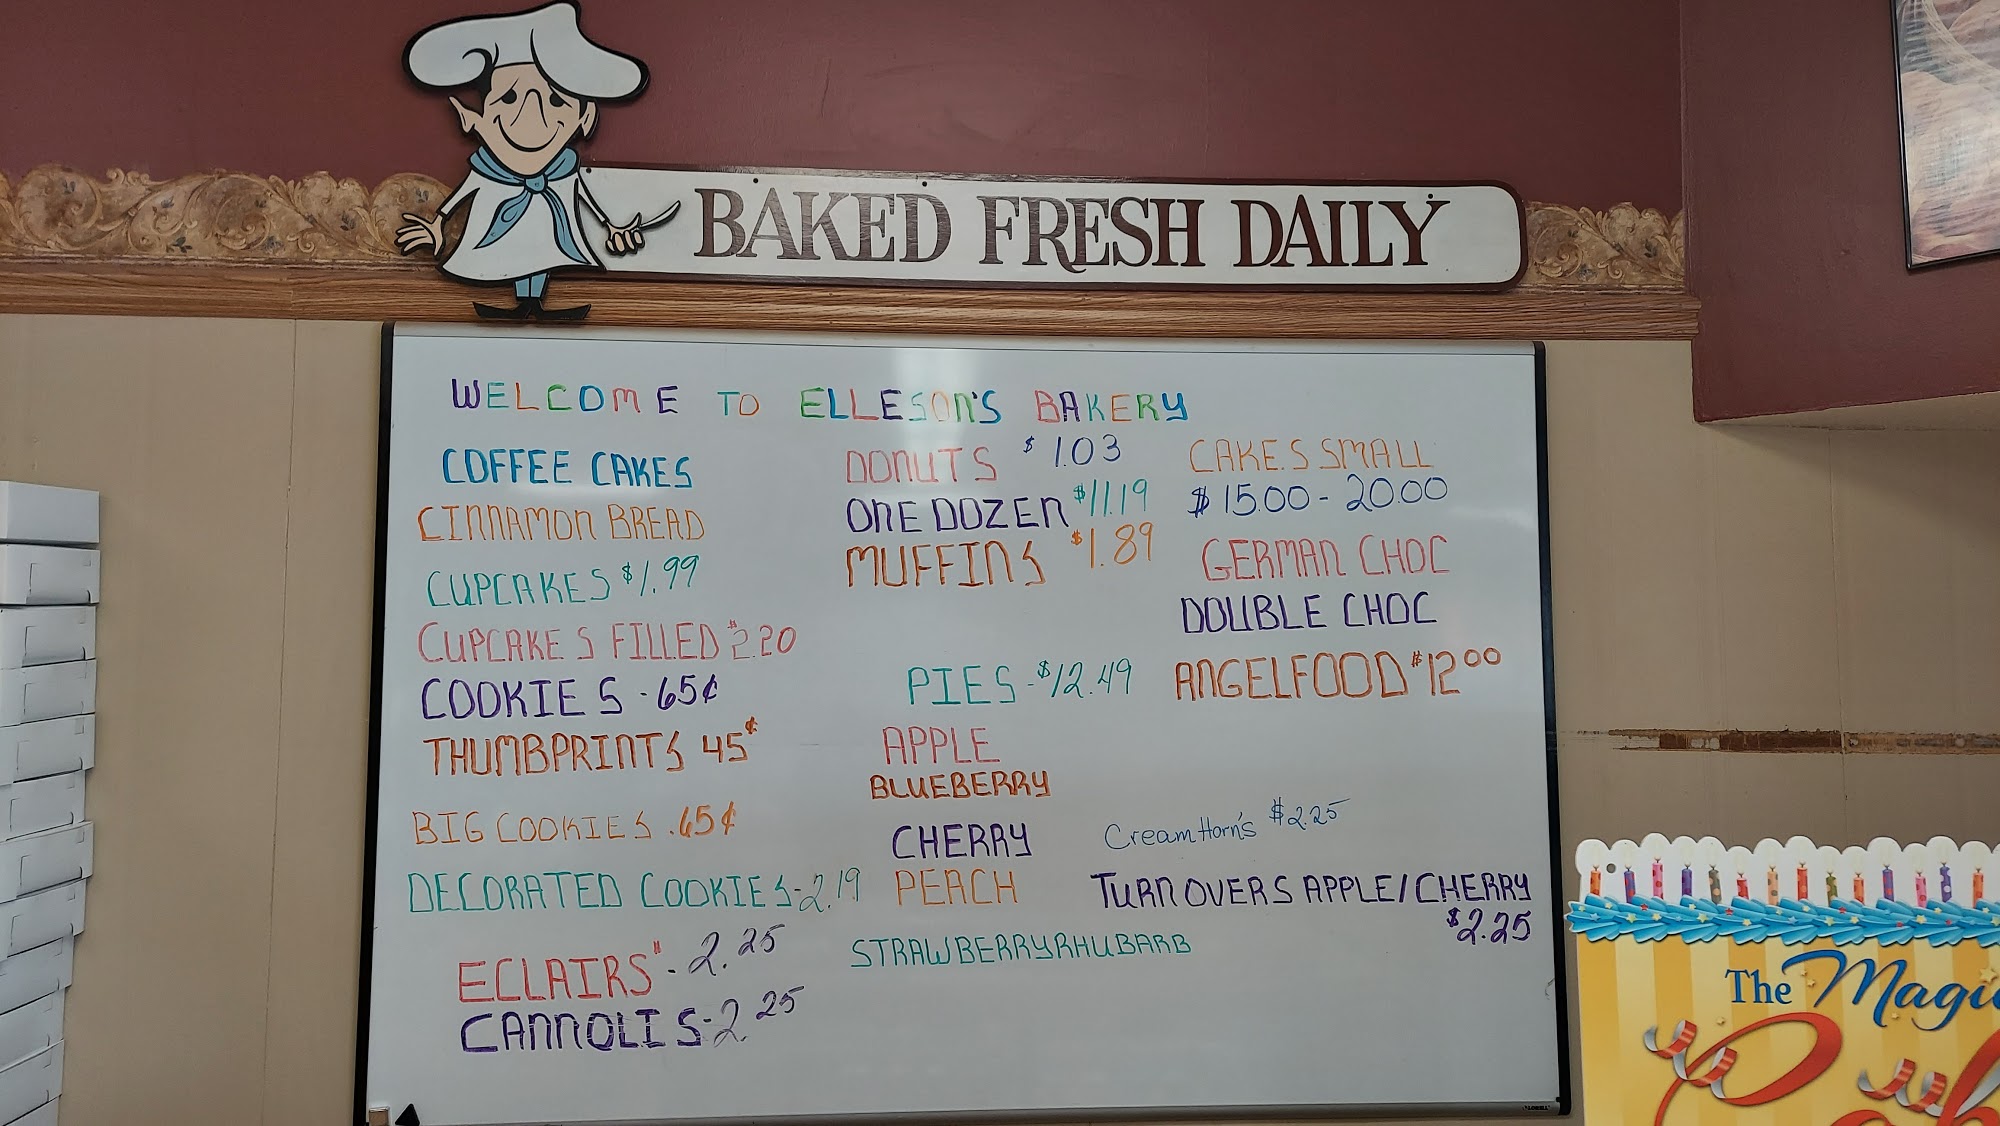 BAKED FRESH DAILY
WELCOME TO ELLESON'S BAKERY
COFFEE CAKES
CINNAMON BREAD
CUPCAKES $1.99
CUPCAKES FILLED $2.20
COOKIES - 65¢
THUMBPRINTS 45¢
BIG COOKIES .65¢
DECORATED COOKIES - 2.19
ECLAIRS" - 2.25
CANNOLIS - 2.25
DONUTS $1.03
ONE DOZEN $11.19
MUFFINS $1.89
PIES - $12.49
APPLE
BLUEBERRY
CHERRY
PEACH
STRAWBERRYRHUBARB
CAKES SMALL
$15.00 - 20.00
GERMAN CHOC
DOUBLE CHOC
ANGELFOOD $12 00
Cream Horn's $2.25
TURNOVERS APPLE/CHERRY
$2.25
The Magic